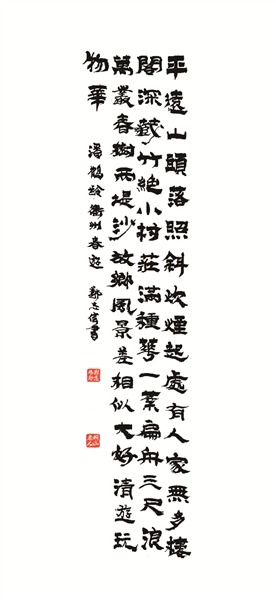 平遠山頭落照斜炊煙起處有人家無多樓
閣深藏竹絕小村莊滿種華一葉扁舟三尺浪
萬叢春樹兩堤沙故鄉風景差相似大好清遊玩
物華
衢州春遊 鄭志書